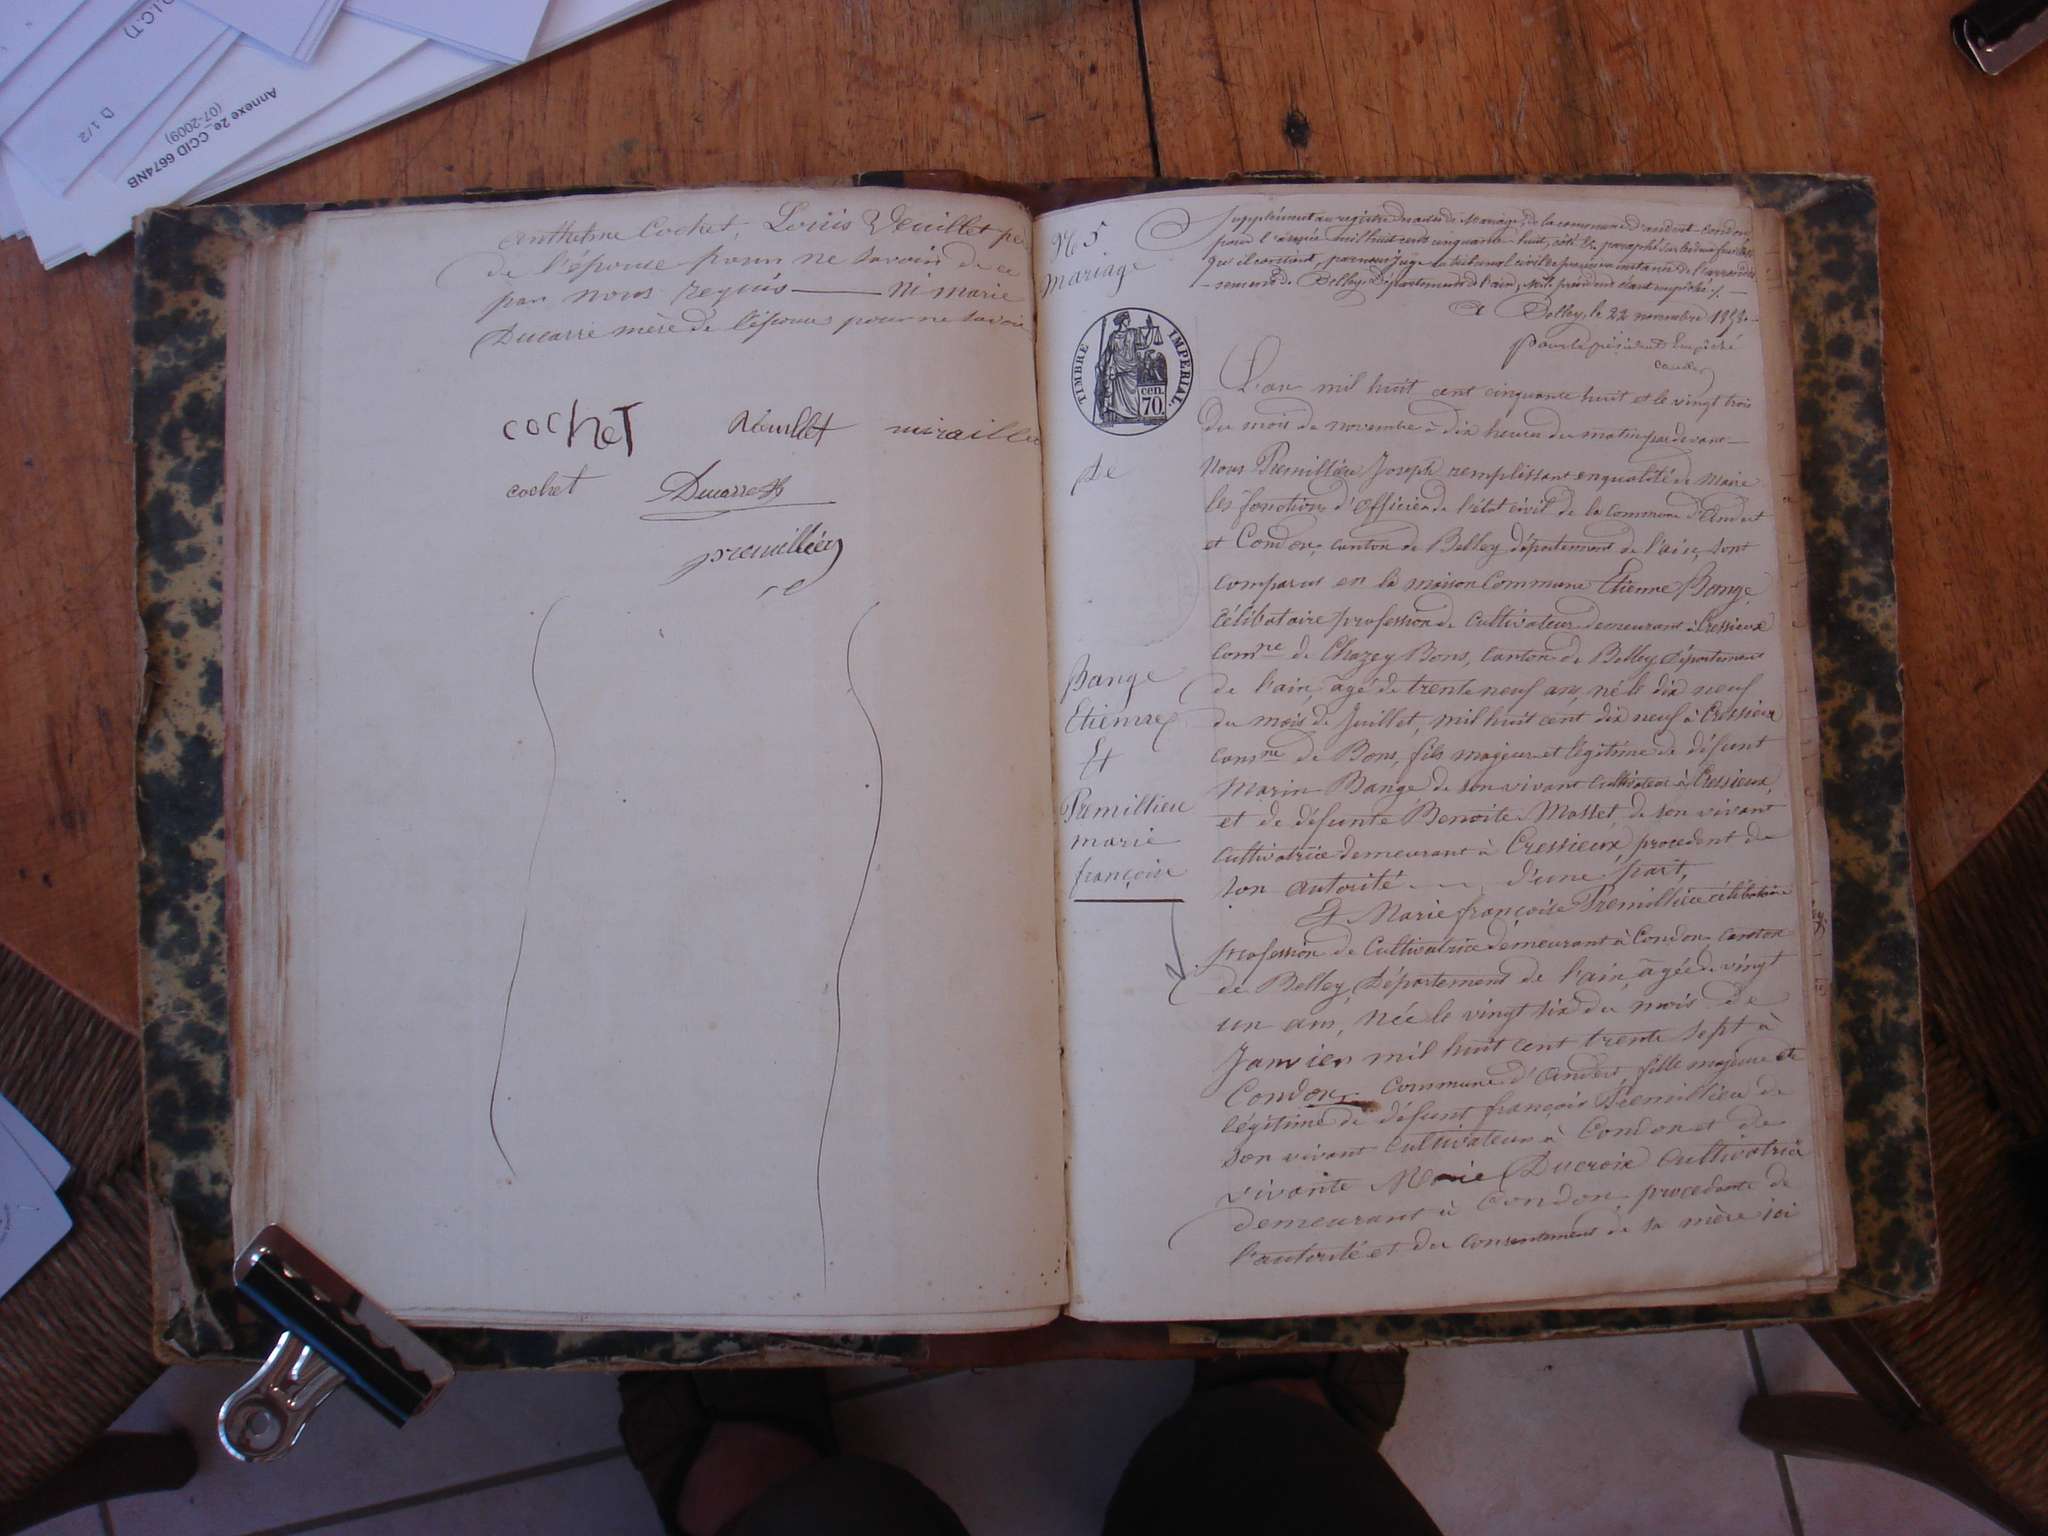 D.I.C.T)
D 1/2
Annexe 2e_CCID 6674NB
(07-2009)
Anthelme Cochet, Louis Veuillet père
de l'épouse pour ne savoir de ce
par nous requis —— ni marie
Ducarre mère de l'épouse pour ne savoir
cocheT
miraillet
cochet
Ducarre
premillieu
No 5
Mariage
Supplément au registre des actes de Mariage, de la commune d'andert-Condon
pour l'année mil huit cent cinquante huit, côté & paraphé sur les deux feuillets
qu'il contient, par nous Juge au tribunal civil de première instance de l'arrondis
-sement de Belley, Département de l'ain, Mr le président étant empêché ./. —
A Belley, le 22 novembre 1858.
pour le président Empêché
TIMBRE IMPERIAL.
cen.
70.
L'an mil huit cent cinquante huit et le vingt trois
du mois de novembre à dix heures du matin par devant
De
Nous Premillieu Joseph remplissant en qualité de Maire
les fonctions d'officier de l'état civil de la Commune d'Andert
et Condon, canton de Belley département de l'ain, sont
comparus en la maison Commune Etienne Bange
Célibataire profession de Cultivateur demeurant à Cressieux
comne de Chazey Bons, Canton de Belley, département
Bange
de l'ain, âgé de trente neuf ans, né le dix neuf
Etienne
du mois de Juillet, mil huit cent dix neuf à Cressieux
Et
comne de Bons, fils majeur et légitime de défunt
Premillieu
Marin Bange de son vivant Cultivateur à Cressieux,
marie
et de défunte Benoite Mosset de son vivant
françoise
Cultivatrice demeurant à Cressieux, procedent de
son autorité d'une part,
Et Marie françoise Premillieu célibataire
profession de Cultivatrice demeurant à Condon, Canton
de Belley, Département de l'ain, âgée de vingt
un ans, née le vingt six du mois de
Janvier mil huit cent trente sept à
Condon, Commune d'Andert, fille majeure et
légitime de défunt françois Premillieu de
son vivant Cultivateur à Condon et de
vivante Marie Ducroix Cultivatrice
demeurant à Condon, procedante de
l'autorité et du consentement de sa mère ici